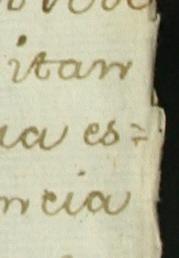 itan
ua es=
ncia